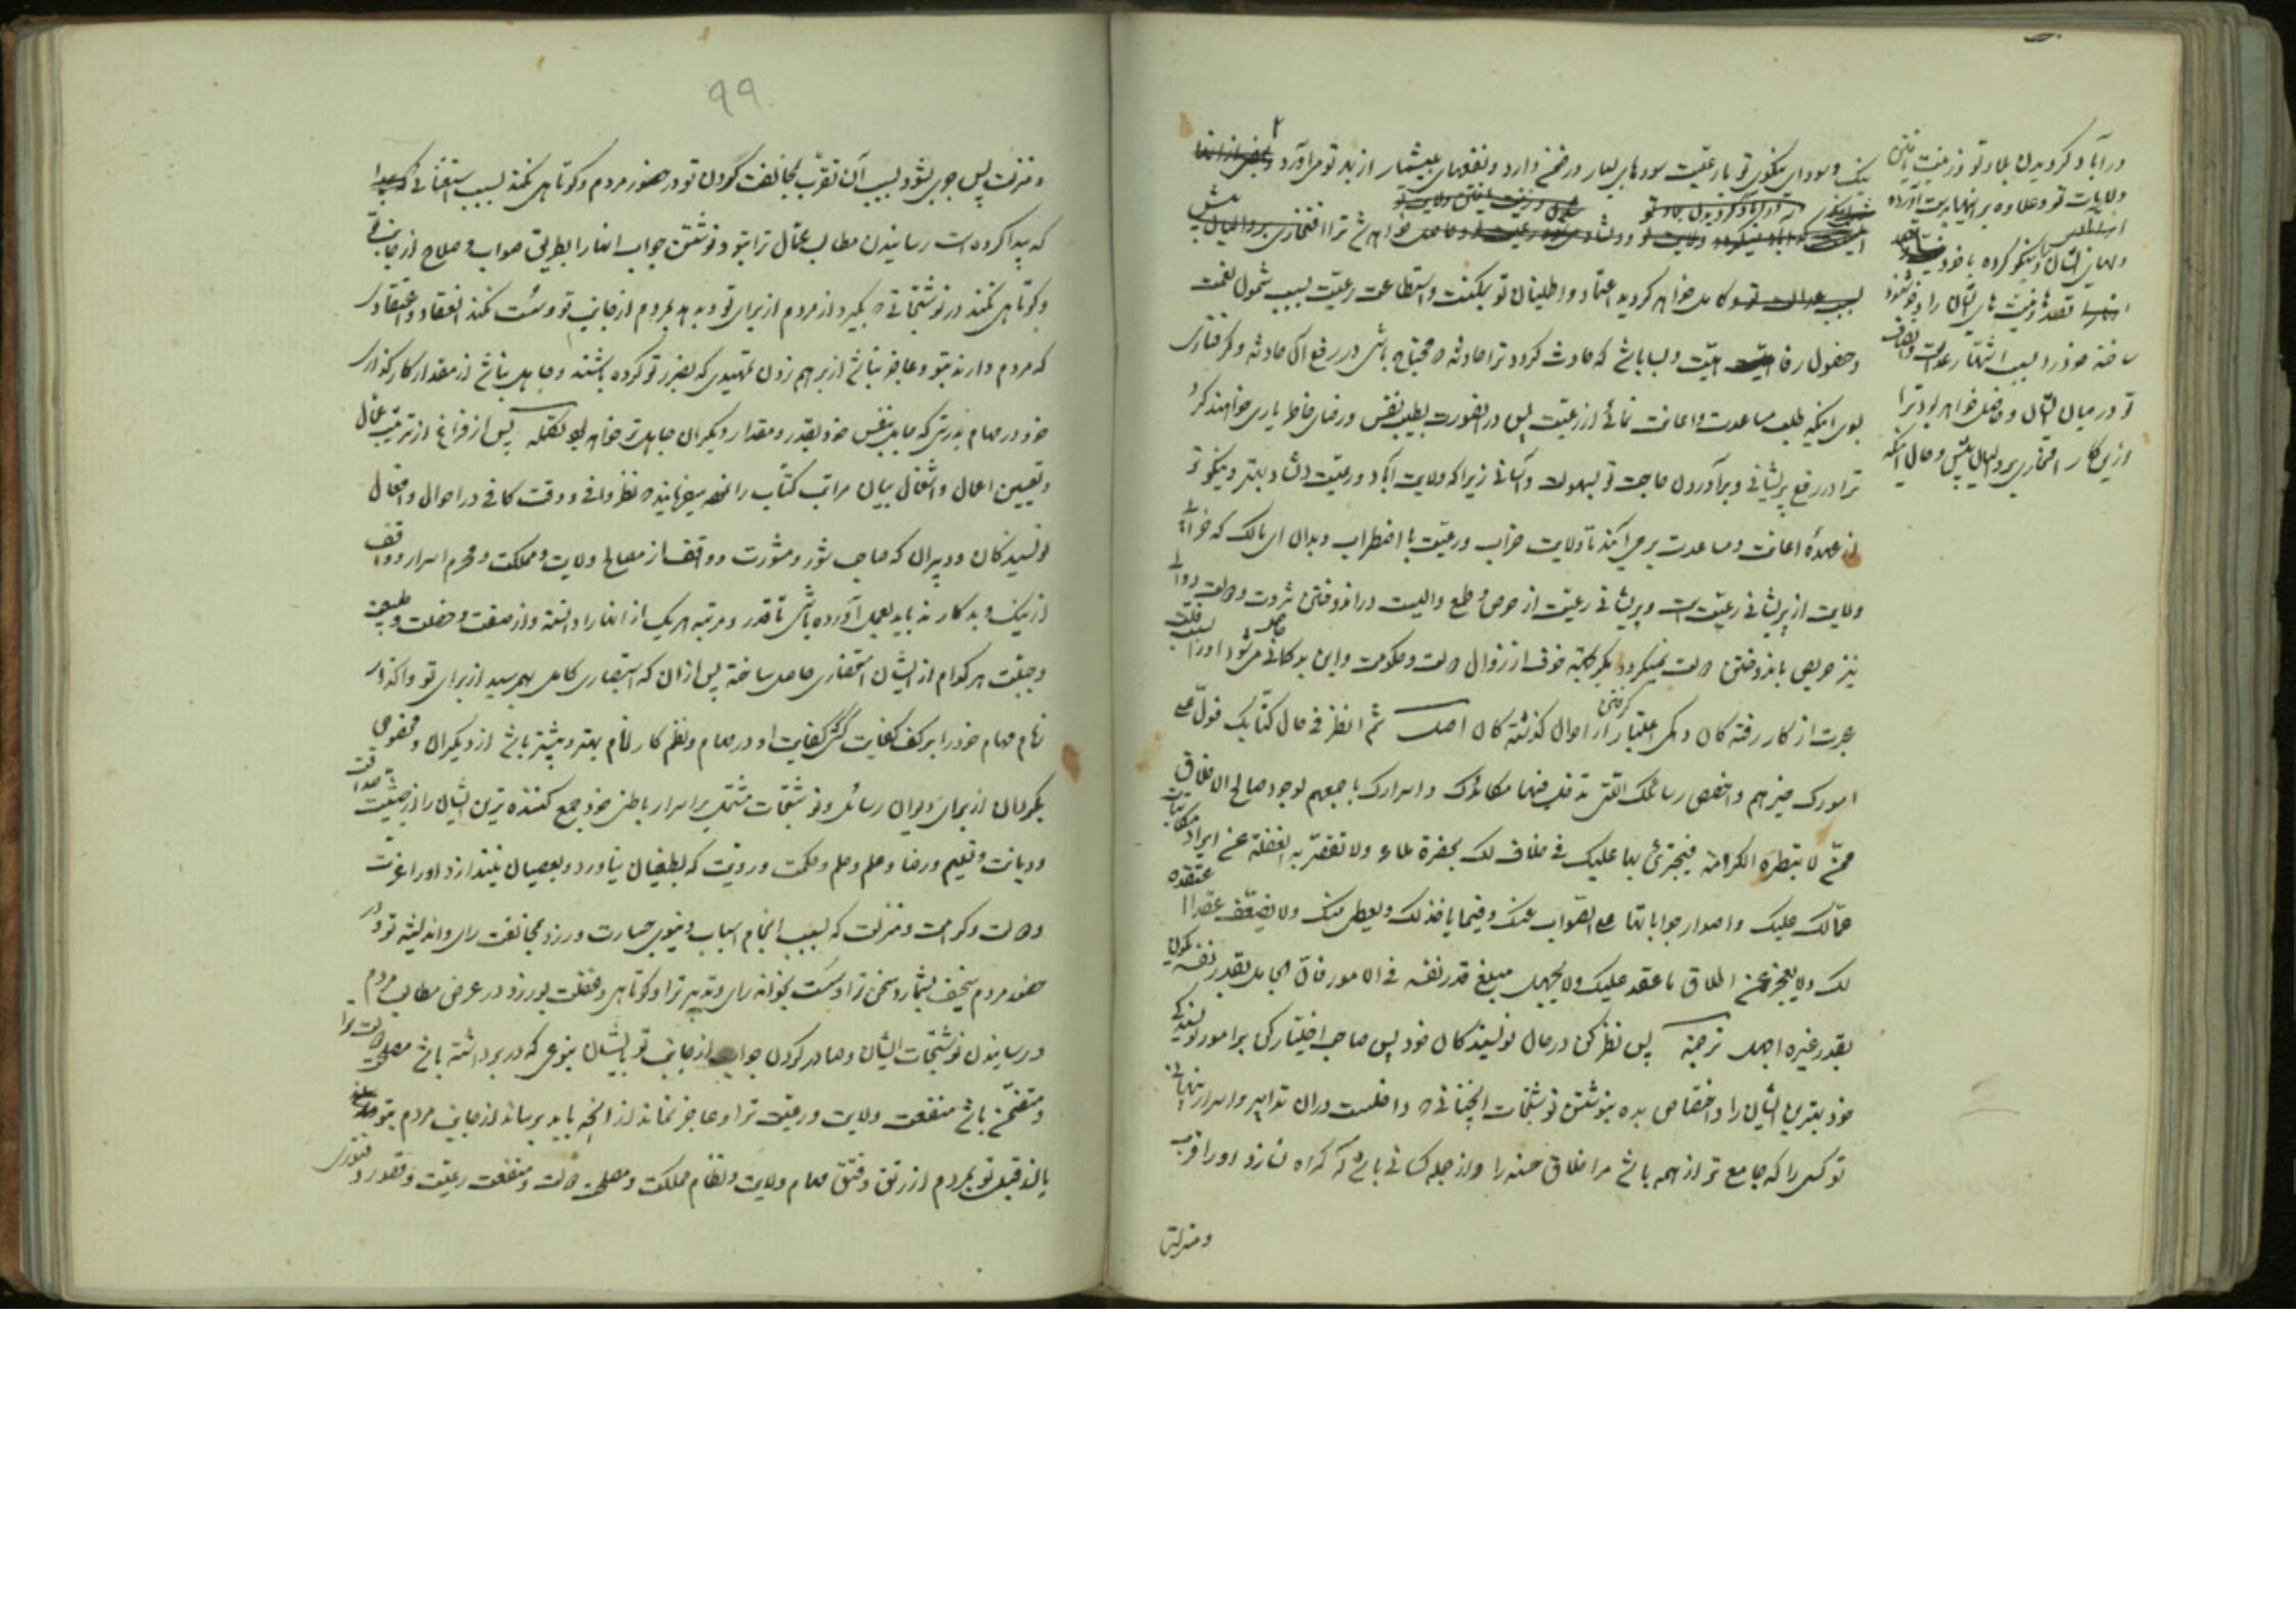 نیک و سودای نیکوی تو با رعیت سودهای بسیار در ضمن دارد و نفعهای بیشمار از بد تو می‌آورد
و کامل خواهد گردید اعتماد و اطمینان تو بمکنت و استطاعت رعیت بسبب شمول نعمت
و حصول رفاهیت و بسا باشد که حادث گردد ترا حادثه و محتاج باشی در رفع آن حادثه و گرفتاری
بسوی اینکه طلب مساعدت و اعانت نمائی از رعیت پس در اینصورت بطیب نفس و رضای خاطر یاری خواهند کرد
ترا در رفع پریشانی و برآوردن حاجت تو بسهولت و آسانی زیرا که ولایت آباد و رعیت دلشاد بهتر و نیکوتر
از عهدهٔ اعانت و مساعدت برمی‌آیند تا ولایت خراب و رعیت با اضطراب و بدان ای مالک که خرابی
ولایت از پریشانی رعیت است و پریشانی رعیت از حرص و طمع والیست در اندوختن ثروت و دولت و والی
نیز حریص باندوختن دولت نمیگردد مگر بجهة خوف از زوال دولت و حکومت و این بدگمانی حاصل میشود او را بسبب قلت
عبرت از کار رفته‌گان و کمی اعتبار گرفتن از احوال گذشته‌گان اصل ثم انظر فی حال کتابک فول علی
امورک خیرهم و اخصص رسائلک التی تدخل فیها مکائدک و اسرارک باجمعهم لوجوه صالح الاخلاق
ممن لا تبطره الکرامة فیجترئ بها علیک فی خلاف لک بحضرة ملاء و لا تقصر به الغفلة عن ایراد مکاتبات
عمالک علیک و اصدار جواباتها علی الصواب عنک و فیما یاخذ لک و یعطی منک و لا یضعف عقدا اعتقده
لک و لا یعجز عن اطلاق ما عقد علیک و لا یجهل مبلغ قدر نفسه فی الامور فان الجاهل بقدر نفسه یکون
بقدر غیره اجهل ترجمه پس نظر کن در حال نویسندگان خود پس صاحب اختیار کن بر امور نویسندگی
خود بهترین ایشان را و اختصاص بده بنوشتن نوشتجات آنچنانی که داخلست در آن تدابیر و اسرار پنهانی
تو کسی را که جامع‌تر از همه باشد مر اخلاق حسنه را و از جمله کسانی باشد که گمراه نسازد او را قرب
و منزلت
در آباد گردیدن بلاد تو و زینت یافتن
ولایات تو و علاوه بر اینها بدست آورده
ساخته خود را بسبب اشتهار عدالت و انصاف
تو در میان ایشان و حاصل خواهد بود ترا
ازین کار افتخاری بر والیان پیش و حال اینکه
۹۹
و منزلت پس جری بشود بسبب آن تقرب بمخالفت کردن تو در حضور مردم و کوتاهی نکند بسبب استغنائی
که پیدا کرده است رسانیدن مطالب عمال ترا بتو و نوشتن جواب آنها را بطریق صواب و صلاح از جانب تو
و کوتاهی نکند در نوشتجاتی که بگیرد از مردم از برای تو و بدهد بمردم از جانب تو و سست نکند انعقاد و اعتقادی
که مردم دارند بتو و عاجز نباشد از بر هم زدن تمهیدی که بضرر تو کرده باشند و جاهل نباشد از مقدار کارگذاری
خود در مهام بدرستی که جاهل بنفس خود بقدر و مقدار دیگران جاهل‌تر خواهد بود تکمله پس از فراغ از ترتیب عمال
و تعیین اعمال و اشغال بیان مراتب کتاب را میفرمایند که نظر وافی و دقت کافی در احوال و افعال
نویسندگان و دبیران که صاحب شور و مشورت و واقف از مصالح ولایت و مملکت و محرم اسرار و واقف
از نیک و بد کارند باید بعمل آورده باشی تا قدر و مرتبه هر یک از آنها را دانسته و از صفت و خصلت و طبیعت
و جبلت هر کدام از ایشان استحضاری حاصل ساخته پس از آن که استبصاری کامل بهم رسید از برای تو واگذار
زمام مهام خود را بر کف کفایت کسی کفایت او در مهام و نظم کار انام بهتر و بیشتر باشد از دیگران و مخصوص
بگردان از برای دیوان رسائل و نوشتجات مشتمل بر اسرار باطنی خود جمع کننده ترین ایشان را از حیثیت صداقت
و دیانت و تعلیم و رضا و علم و حلم و حکمت و رویت که بطغیان نیاورد و بعصیان نیندازد او را عزت
و دولت و کرامت و منزلت که بسبب انجام اسباب دنیوی جسارت ورزد و مخالفت رای و اندیشه تو در
حضور مردم سخیف بشمارد سخن ترا و سست بخواند رای و تدبیر ترا و کوتاهی و غفلت بورزد در عرض مطالب مردم
و رسانیدن نوشتجات ایشان و صادر کردن جواب از جانب تو بایشان بنوعی که در بر داشته باشد مصلحت دولت ترا
و متضمن باشد منفعت ولایت و رعیت ترا و عاجز نماند از آنچه باید برساند از جانب مردم بتو
یا از قبل تو بمردم از رتق و فتق مهام ولایت و نظام مملکت و مصلحت دولت و منفعت رعیت و قصور و فتوری